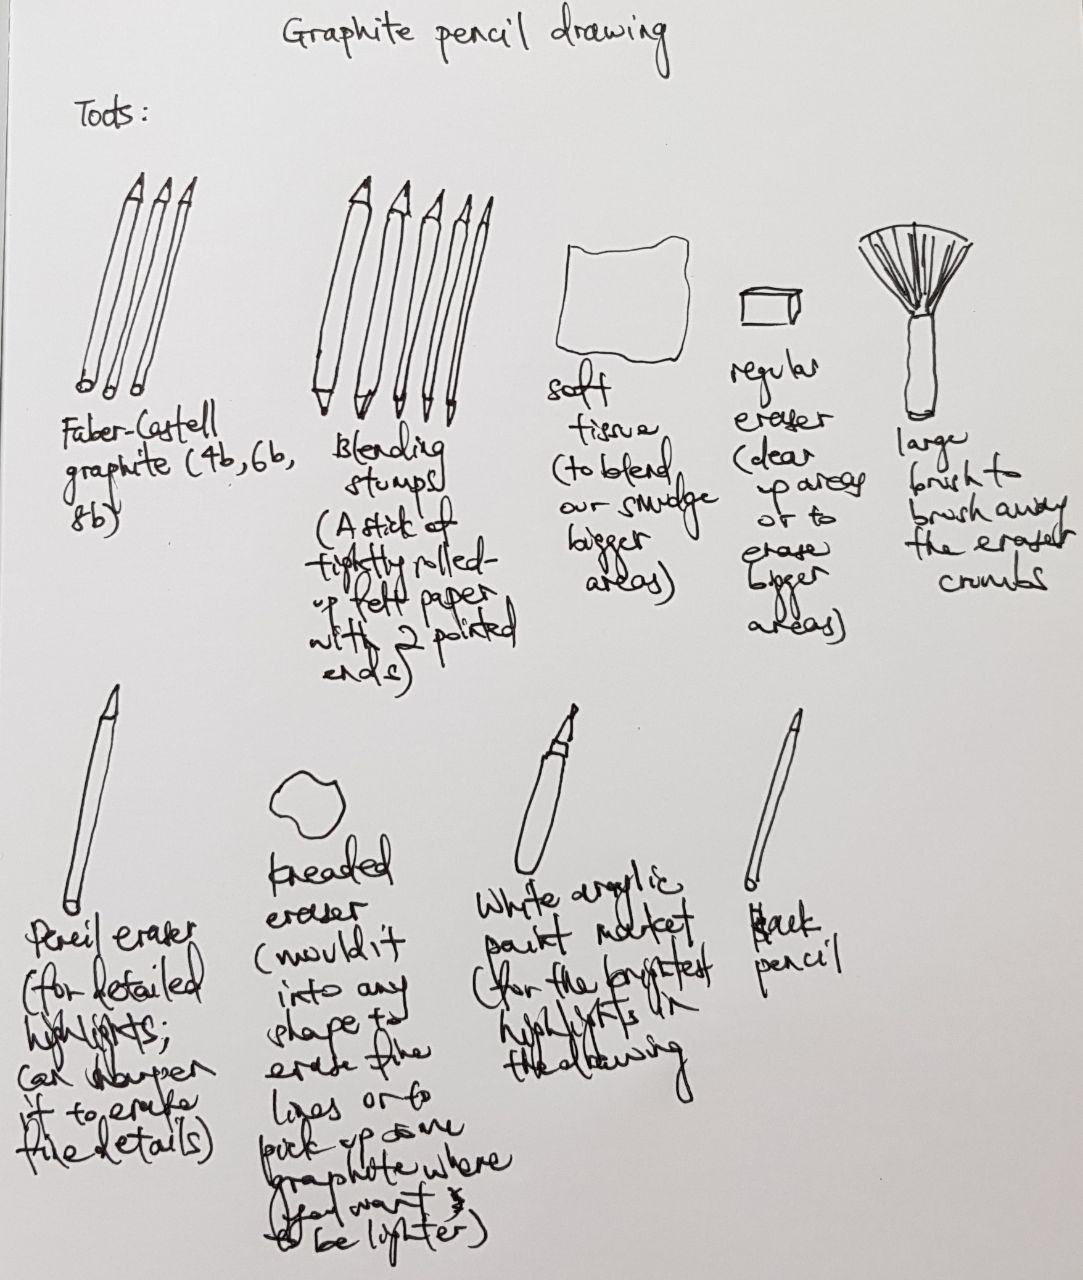 Graphite pencil drawing
Tools:
Faber-Castell
graphite (4b, 6b,
8b)
Blending
stumps
(A stick of
tightly rolled-
up felt paper
with 2 pointed
ends)
soft
tissue
(to blend
our smudge
bigger
areas)
regular
eraser
(clear
up areas
or to
erase
bigger
areas)
large
brush to
brush away
the eraser
crumbs
Pencil eraser
(for detailed
highlights;
can sharpen
it to erase
fine details)
kneaded
eraser
(mould it
into any
shape to
erase fine
lines or to
pick up some
graphite where
you want
to be lighter)
White acrylic
paint market
(for the brightest
highlights in
the drawing
pencil